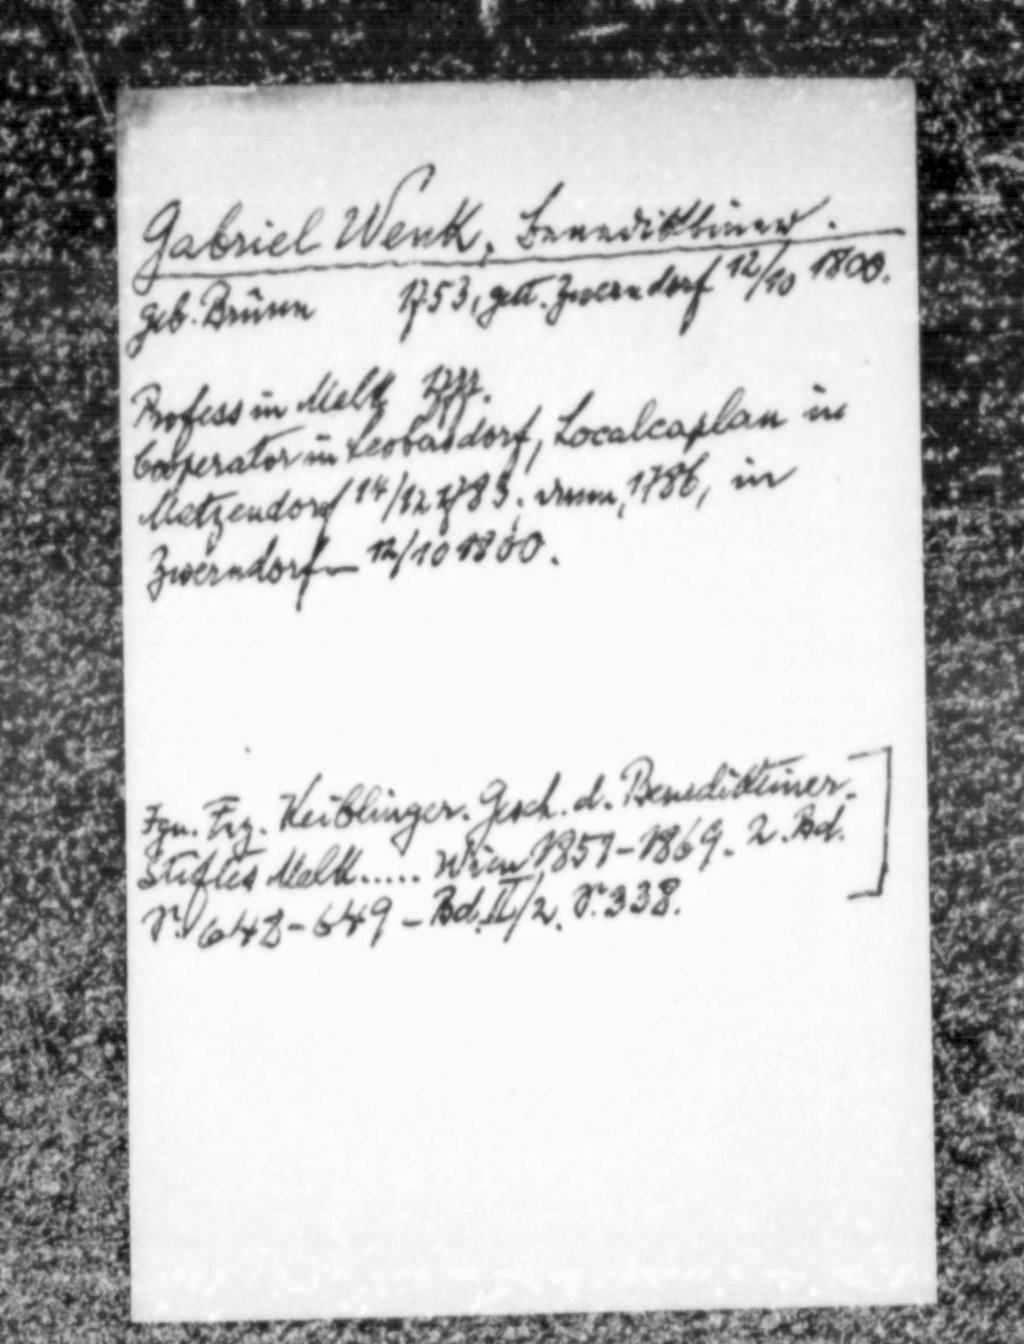 Gabriel Wenk, Benediktiner.
geb. Brünn 1753, gest. Zwerndorf 12/10 1800.
Profess in Melk 1777.
Cooperator in Leobasdorf, Localcaplan in
Matzendorf 14/12 1783. dann, 1786, in
Zwerndorf 12/10 1800.
Ign. Frz. Keiblinger. Gesch. d. Benediktiner-
Stiftes Melk..... Wien 1851-1869. 2. Bd.
S. 648-649 - Bd. II/2. S. 338.